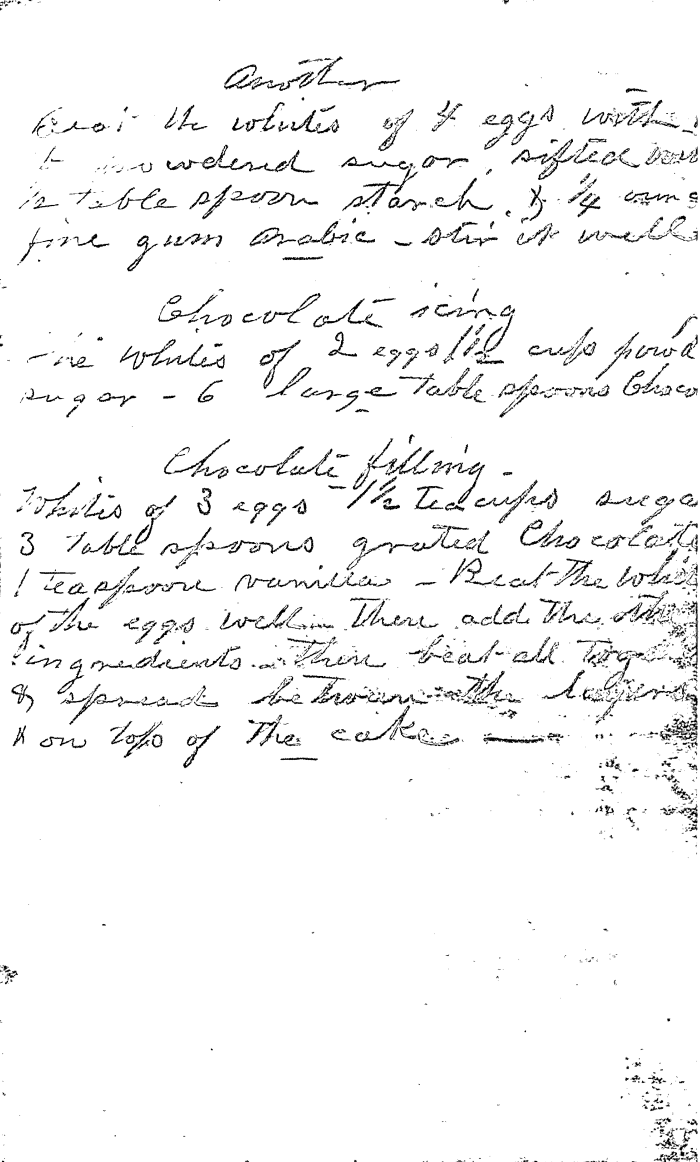 Another
Beat the whites of 4 eggs with
powdered sugar, sifted
1/2 table spoon starch, & 1/4 ounc
fine gum arabic - stir it well
Chocolate icing
The whites of 2 eggs 1 1/2 cups powd
sugar - 6 large table spoons Choco
Chocolate filling -
Whites of 3 eggs - 1 1/2 teacups suga
3 table spoons grated Chocolate
1 teaspoon vanilla - Beat the whit
of the eggs well - then add the othe
ingredients - then beat all toge
& spread between the layers
& on top of the cake